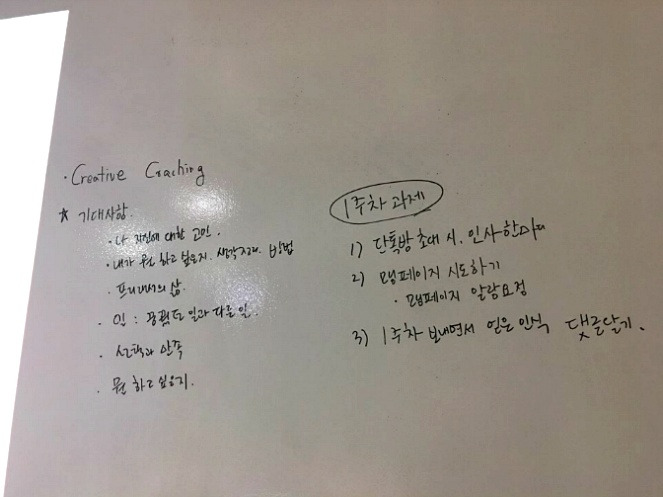 · Creative Coaching
★ 기대사항.
· 나 자신에 대한 고민.
· 내가 뭔 하고 싶은지. 생각정리. 방법
· 프리랜서의 삶.
· 일과 다른 일.
· 선택과 만족
· 뭔 하고 싶은지.
1주차 과제
1) 단톡방 초대 시. 인사 한마디
2) 모닝페이지 시도하기
· 모닝페이지 알람요정
3) 1주차 보내면서 얻은 인식 댓글달기.